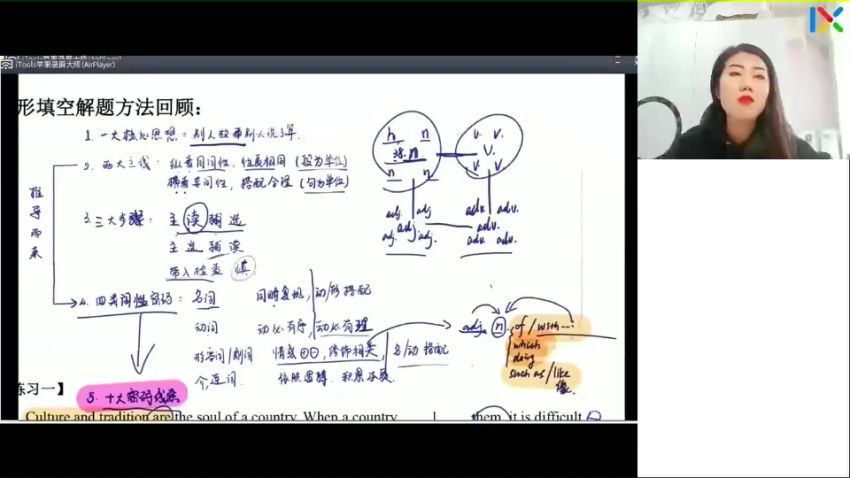 iTools苹果录屏大师(AirPlayer)
形填空解题方法回顾:
1. 一大核心思想:别人故事别人说了算.
2. 两大主线: 纵看同词性, 性质相同 (段为单位)
横看异词性, 搭配合理 (句为单位)
推导而来
3. 三大步骤: 主读辅选
主选辅读
带入检查 慎
4. 四类词性密码: 名词 同畴复现, 动/形搭配
动词 动必有序, 动必有理
形容词/副词 情感⊕⊖, 修饰相关, 名/动搭配
介,连词. 依照逻辑, 积累本质.
n n
n n
v. v.
v.
v v
adj. adj
adj
adj. adj.
adv. adv.
adv.
adv. adv.
adj. n. of / with ...
which
doing
such as / like
像
练习一】
5. 十大密码线索
Culture and tradition are the soul of a country. When a country
1
them, it is difficult